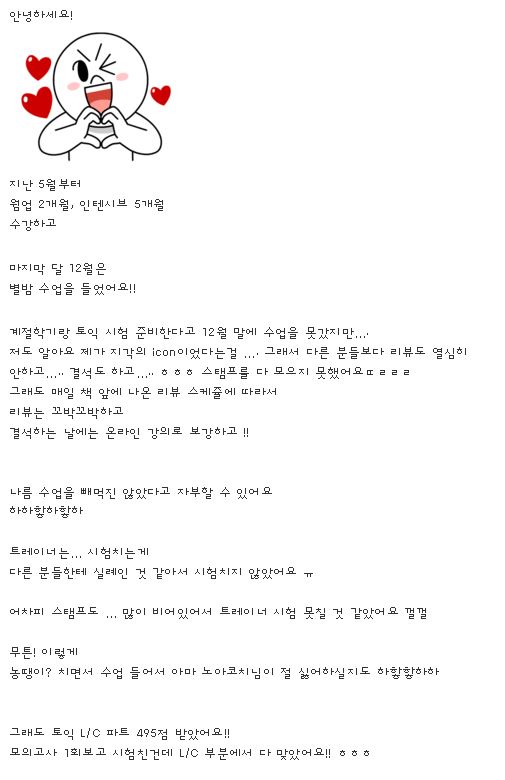 안녕하세요!
지난 5월부터
웜업 2개월, 인텐시브 5개월
수강하고
마지막 달 12월은
별밤 수업을 들었어요!!
계절학기랑 토익 시험 준비한다고 12월 말에 수업을 못갔지만...·
저도 알아요 제가 지각의 icon이었다는걸 ...· 그래서 다른 분들보다 리뷰도 열심히
안하고...·· 결석도 하고...·· ㅎㅎㅎ 스탬프를 다 모으지 못했어요ㄸㄹㄹㄹ
그래도 매일 책 앞에 나온 리뷰 스케쥴에 따라서
리뷰는 꼬박꼬박하고
결석하는 날에는 온라인 강의로 보강하고 !!
나름 수업을 빼먹진 않았다고 자부할 수 있어요
하하핳하핳하
트레이너는... 시험치는게
다른 분들한테 실례인 것 같아서 시험치지 않았어요 ㅠ
어차피 스탬프도 ... 많이 비어있어서 트레이너 시험 못칠 것 같았어요 껄껄
무튼! 이렇게
농땡이? 치면서 수업 들어서 아마 노아코치님이 절 싫어하실지도 하핳핳하하
그래도 토익 L/C 파트 495점 받았어요!!
모의고사 1회보고 시험친건데 L/C 부분에서 다 맞았어요!! ㅎㅎㅎ